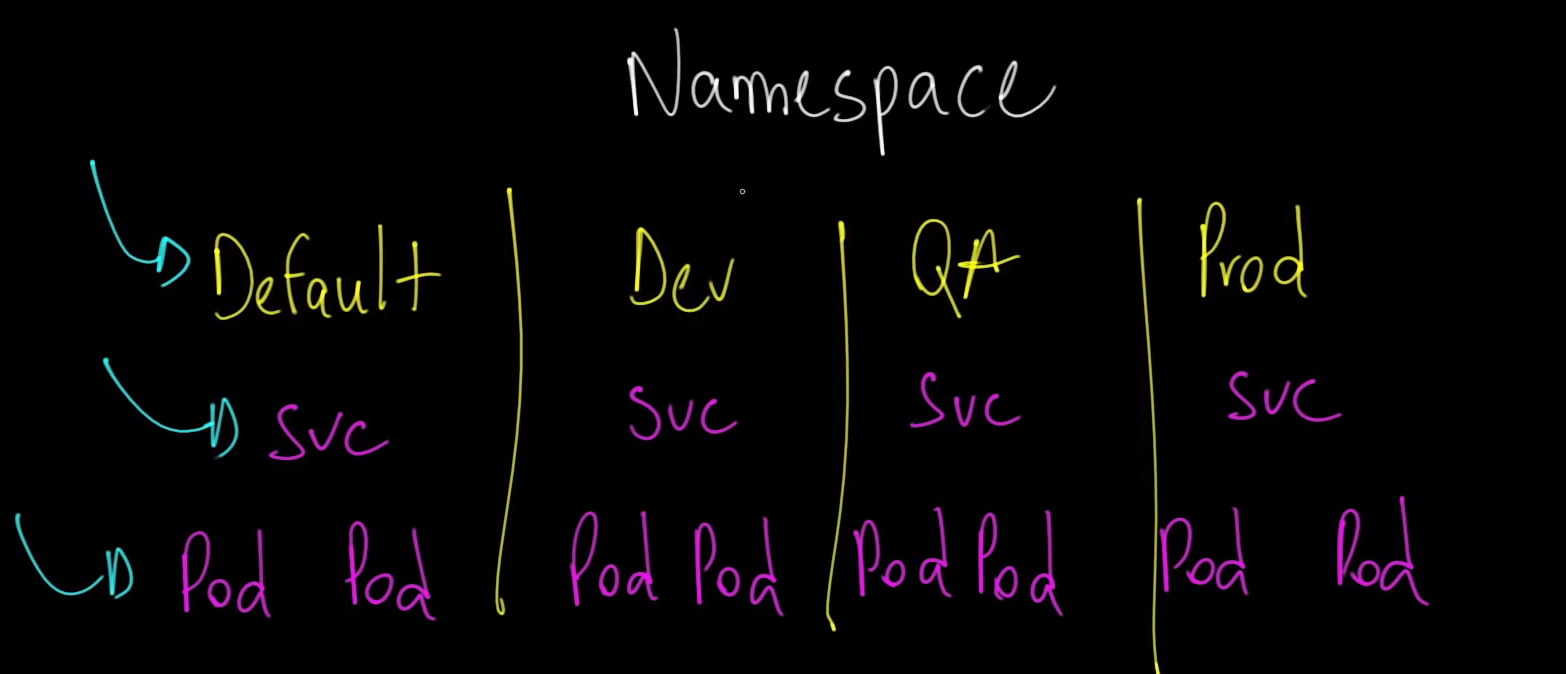 Namespace
Default Dev QA Prod
svc svc svc svc
Pod Pod Pod Pod Pod Pod Pod Pod